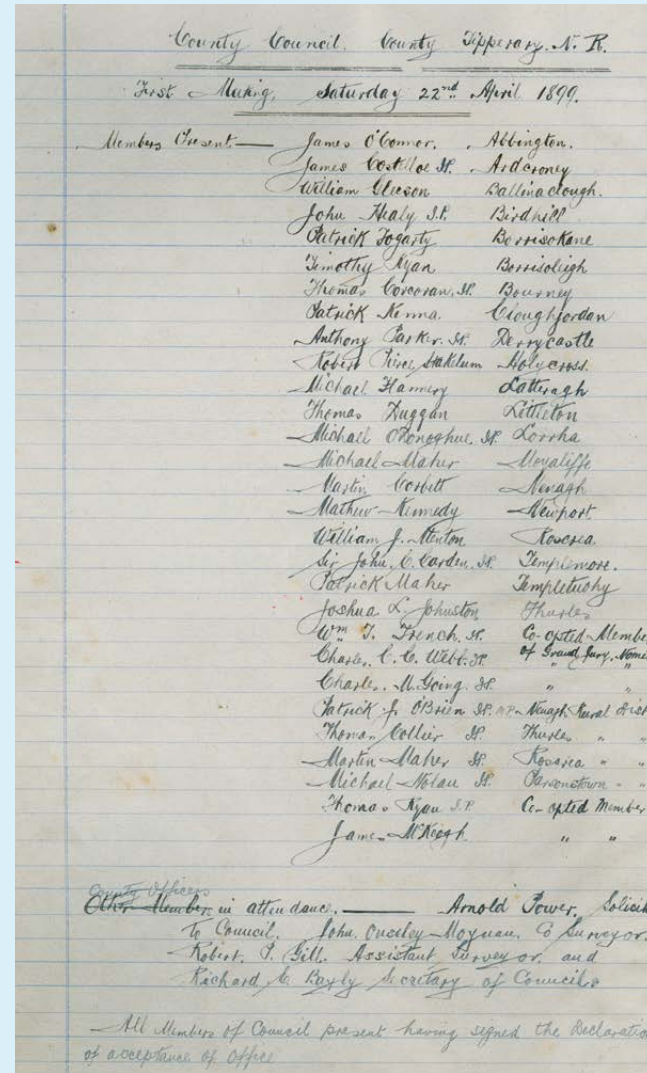 County Council. County Tipperary. N. R.
First Meeting, Saturday 22nd April 1899.
Members Present.— James O'Connor. Abbington.
James Costelloe JP. Ardcroney
William Gleeson Ballinaclough.
John Healy J.P. Birdhill
Patrick Fogarty Borrisokane
Timothy Ryan Borrisoleigh
Thomas Corcoran. JP. Bourney
Patrick Kenna. Cloughjordan
Anthony Parker. JP. Derrycastle
Robert Pierce Stakelum Holycross.
Michael Flannery Latteragh
Thomas Duggan Littleton
Michael O'Donoghue. JP. Lorrha
Michael Maher Moyaliffe
Martin Corbett Nenagh
Mathew Kennedy Newport.
William J. Menton Roscrea
Sir John. C. Carden. JP. Templemore.
Patrick Maher Templetuohy
Joshua L. Johnston Thurles
Wm T. Trench. JP. Co-opted Membe
Charles. C. C. Webb. JP. of Grand Jury. Nom
Charles. M. Going. JP. " "
Patrick J. O'Brien JP. M.P. Nenagh Rural Dist
Thomas Collier JP. Thurles " "
Martin Maher JP. Roscrea " "
Michael Nolan JP. Parsonstown " "
Thomas Ryan J.P. Co-opted Member
James McKeogh " "
County Officers
Other Member in attendance. — Arnold Power. Solicit
to Council. John. Ouseley Moynan. Co Surveyor.
Robert. P. Gill. Assistant Surveyor. and
Richard C. Bayly Secretary of Council.
All Members of Council present having signed the Declaratio
of acceptance of Office